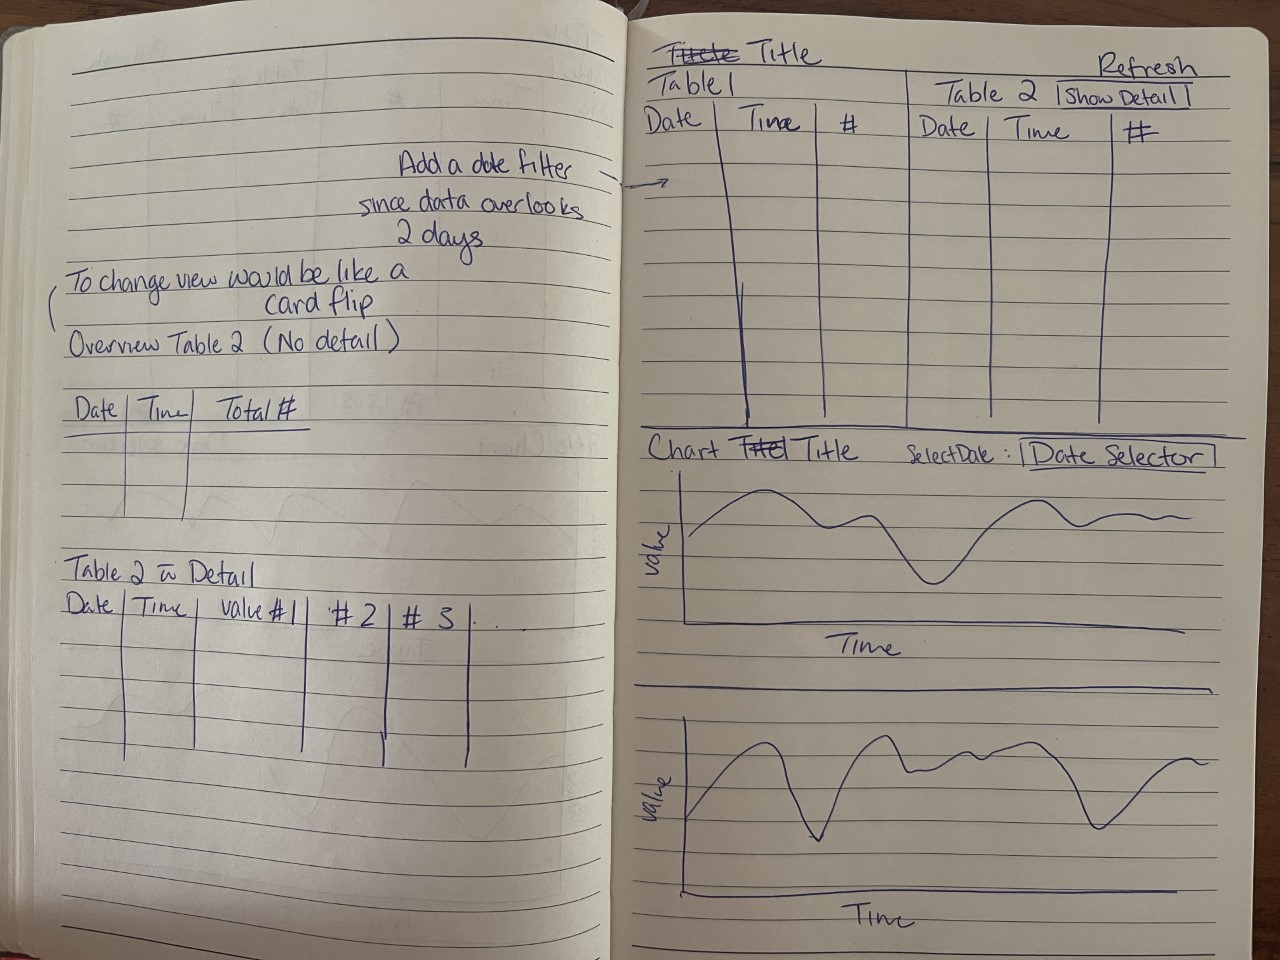 Add a date filter
since data overlooks
2 days
To change view would be like a
card flip
Overview Table 2 (No detail)
Date Time Total #
Table 2 w Detail
Date Time value #1 # 2 # 3 . . .
Title
Refresh
Table 1
Table 2 Show Detail
Date Time # Date Time #
Chart Title Select Date : Date Selector
value
Time
value
Time